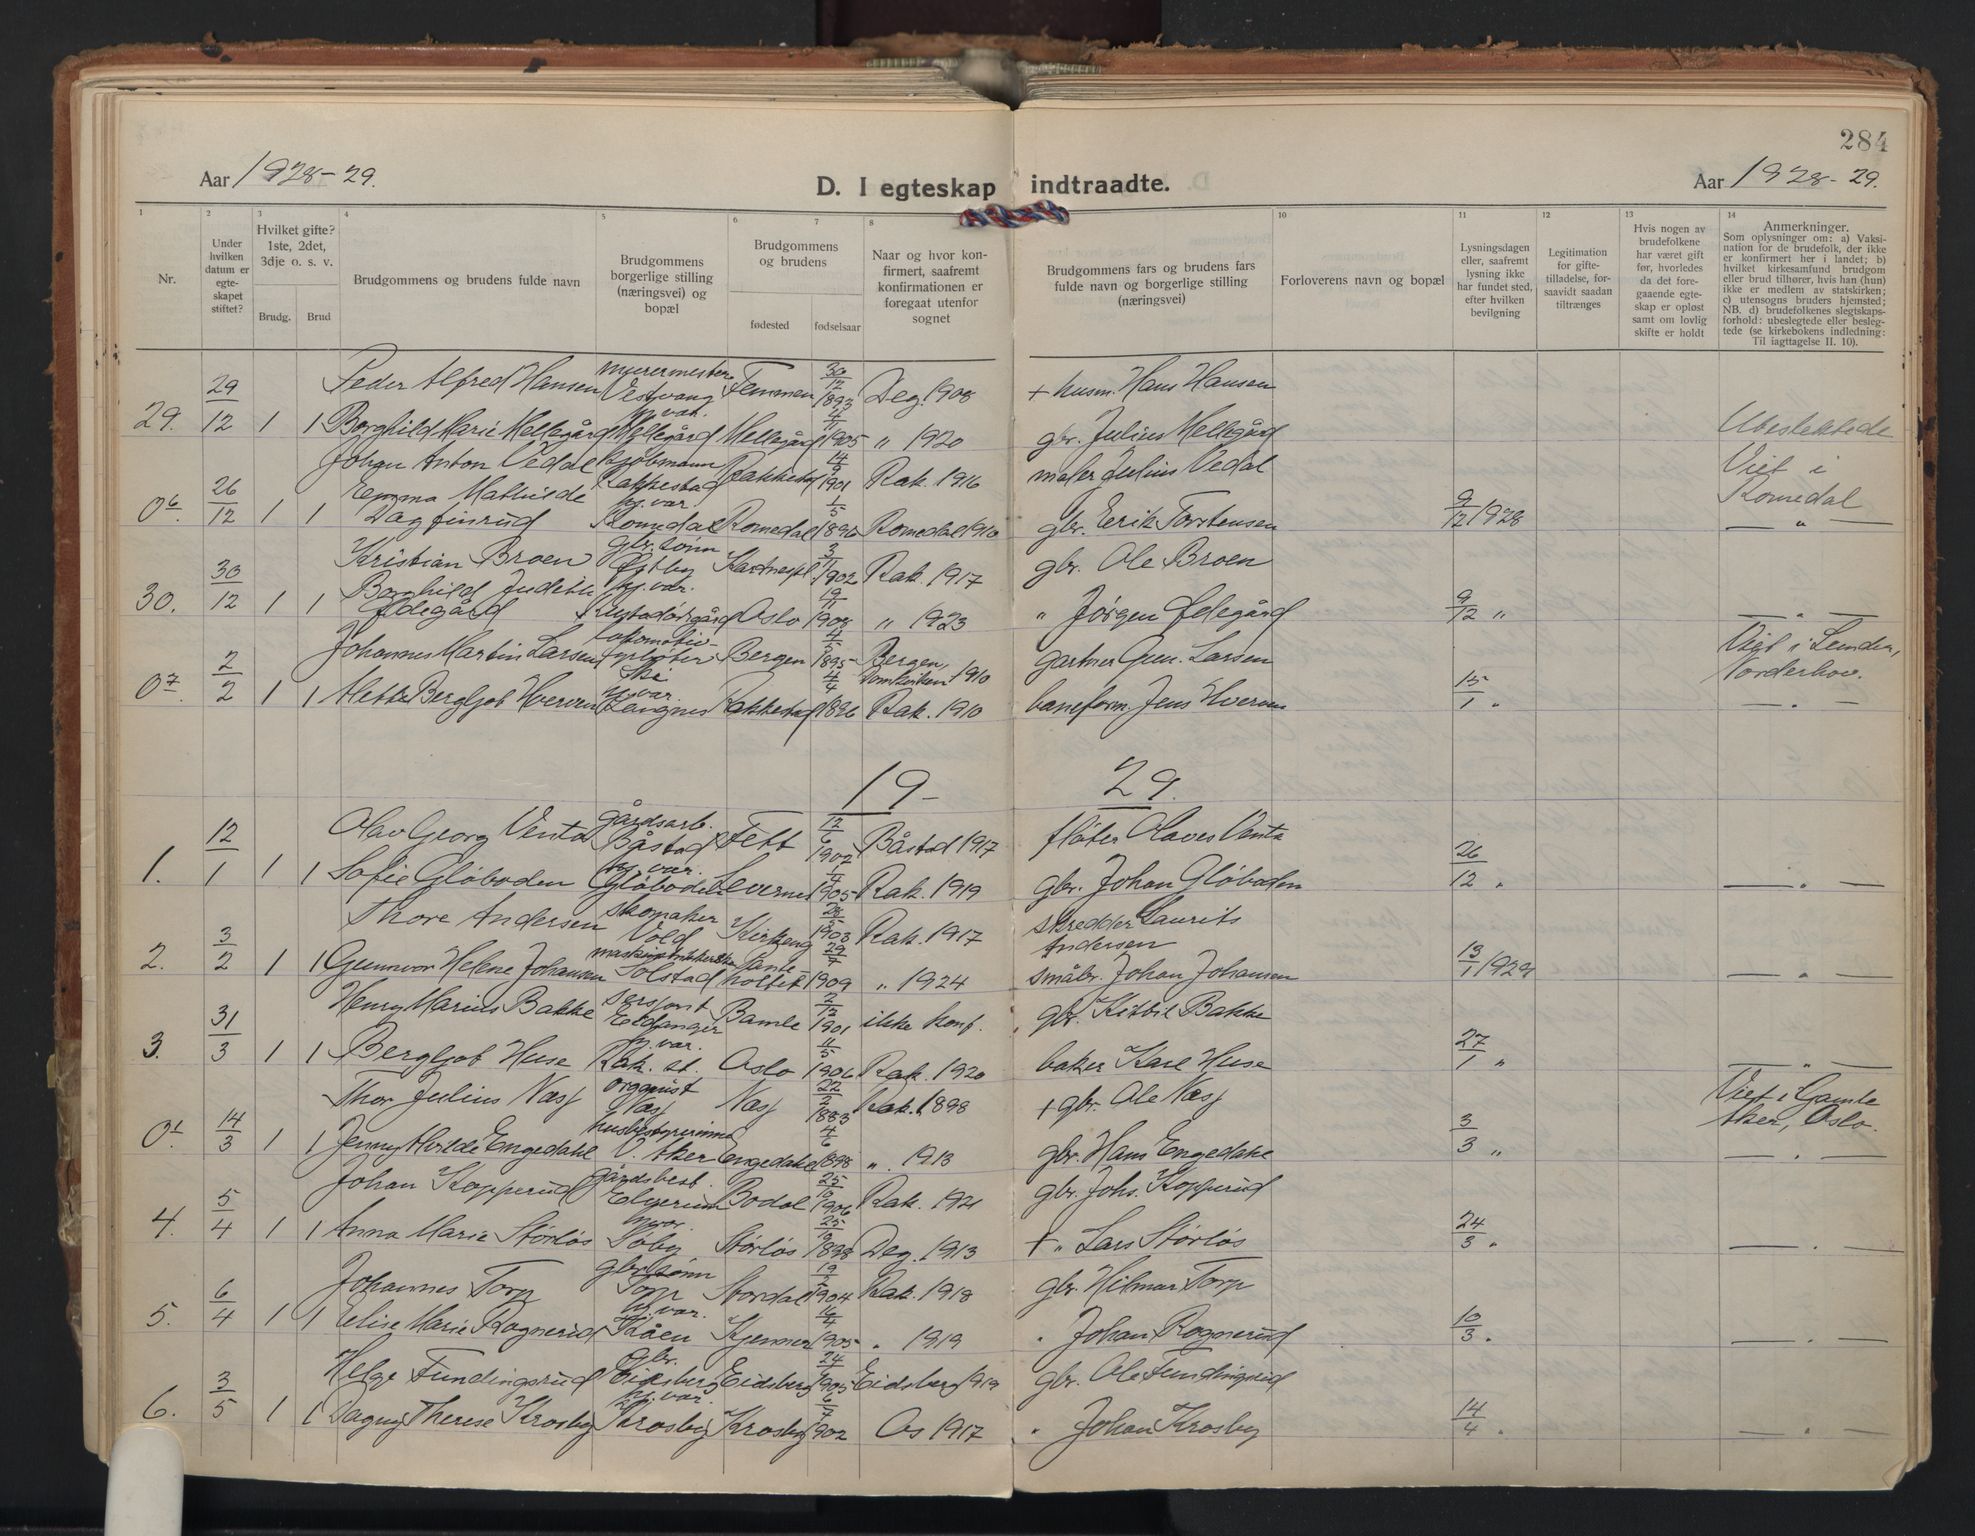 284
Aar 1928-29.
D. I egteskap indtraadte.
Aar 1928-29.
1 2 3 4 5 6 7 8 10 11 12 13 14
Nr.
Under hvilken datum er egteskapet stiftet?
Hvilket gifte? 1ste, 2det, 3dje o. s. v.
Brudg. Brud
Brudgommens og brudens fulde navn
Brudgommens borgerlige stilling (næringsvei) og bopæl
Brudgommens og brudens
fødested fødselsaar
Naar og hvor konfirmert, saafremt konfirmationen er foregaat utenfor sognet
Brudgommens fars og brudens fars fulde navn og borgerlige stilling (næringsvei)
Forloverens navn og bopæl
Lysningsdagen eller, saafremt lysning ikke har fundet sted, efter hvilken bevilgning
Legitimation for giftetilladelse, forsaavidt saadan tiltrænges
Hvis nogen av brudefolkene har været gift før, hvorledes da det foregaaende egteskap er opløst samt om lovlig skifte er holdt
Anmerkninger.
Som oplysninger om: a) Vaksination for de brudefolk, der ikke er konfirmert her i landet; b) hvilket kirkesamfund brudgom eller brud tilhører, hvis han (hun) ikke er medlem av statskirken; c) utensogns bruders hjemsted; NB. d) brudefolkenes slegtskapsforhold: ubeslegtede eller beslegtede (se kirkebokens indledning: Til iagttagelse II. 10).
29/12 Peder Alfred Hansen murermester Vestvang Temmen 30/12 1893 Deg. 1908 + husm. Hans Hansen
29. 1 1 Borghild Marie Mellegård hj. var. Mellegård Mellegård 4/11 1905 " 1920 gbr. Julius Mellegård Ubeslektede
26/12 Johan Anton Vedal kjøbmann Rakkestad Rakkestad 1901 Rak. 1916 maler Julius Vedal Viet i Romedal
0 6. 1 1 Emma Mathilde Dagfinrud hj. var. Romedal Romedal 1/5 1896 Romedal 1910 gbr. Erik Torstensen 9/12 1928 — " —
30/12 Kristian Broen gbr. sønn Østby 3/11 1902 Rak. 1917 gbr. Ole Broen
30. 1 1 Borghild Judith Ødegård hj. var. Oslo 19/11 1908 " 1923 " Jørgen Ødegård 9/12 " — " —
2/2 Johannes Martin Larsen lokomotivfyrbøter Bergen 4/5 1895 Bergen, Domkirken 1910 gartner Gun. Larsen Viet i Lunder, Norderhov.
0 7 1 1 Bergljot Hverven hj. var. Langnes Rakkestad 4/4 1896 Rak. 1910 baneform. Jens Hverven 15/1 " — " —
19- 29.
12/1 Olav Georg Venta gårdsarb. Båstad Fett 12/6 1902 Båstad 1917 fløter Olaves Venta
1. 1 1 Sofie Gløboden hj. var. Gløboden 1905 Rak. 1919 gbr. Johan Gløboden 26/12 " — " —
3/2 Thore Andersen skomaker Vold Kirkeng 1903 Rak. 1917 skredder Laurits Andersen
2. 1 1 Gunnvor Helene Johansen Solstad 29/7 1909 " 1924 småbr. Johan Johansen 13/1 1929 — " —
31/3 Henry Marius Bakke sersjant Eidanger Bamle 2/12 1901 ikke konf. gbr. Kittil Bakke
3. 1 1 Bergljot Huse hj. var. Rak. st. Oslo 11/5 1906 Rak. 1920 baker Karl Huse 27/1 " — " —
14/3 Thor Julius Næsj organist Næsj Næsj 22/2 1883 Rak. 1898 + gbr. Ole Næsj Viet i Gamle Aker, Oslo.
0 1 1 1 Jenny Alvilde Engedahl husbestyrerinne V. Aker Engedahl 4/6 1898 " 1913 gbr. Hans Engedahl 3/3 " — " —
5/4 Johan Kopperud gårdsbest. Elgerium Bodal 25/10 1906 Rak. 1921 gbr. Johs. Kopperud
4. 1 1 Anna Marie Størløs hj. var. Søby Størløs 25/10 1898 Deg. 1913 + " Lars Størløs 24/3 " — " —
6/4 Johannes Torp gbr. sønn Torp Stordal 19/5 1904 Rak. 1918 gbr. Hilmar Torp
5. 1 1 Elise Marie Rognerud hj. var. Kåen 16/4 1905 " 1919 " Johan Rognerud 10/3 " — " —
3/5 Helge Fundingsrud gbr. Eidsberg Eidsberg 24/1 1905 Eidsberg 1919 gbr. Ole Fundingsrud
6. 1 1 Dagny Therese Krosby hj. var. Krosby Krosby 6/7 1902 Os 1917 " Johan Krosby 14/4 " — " —